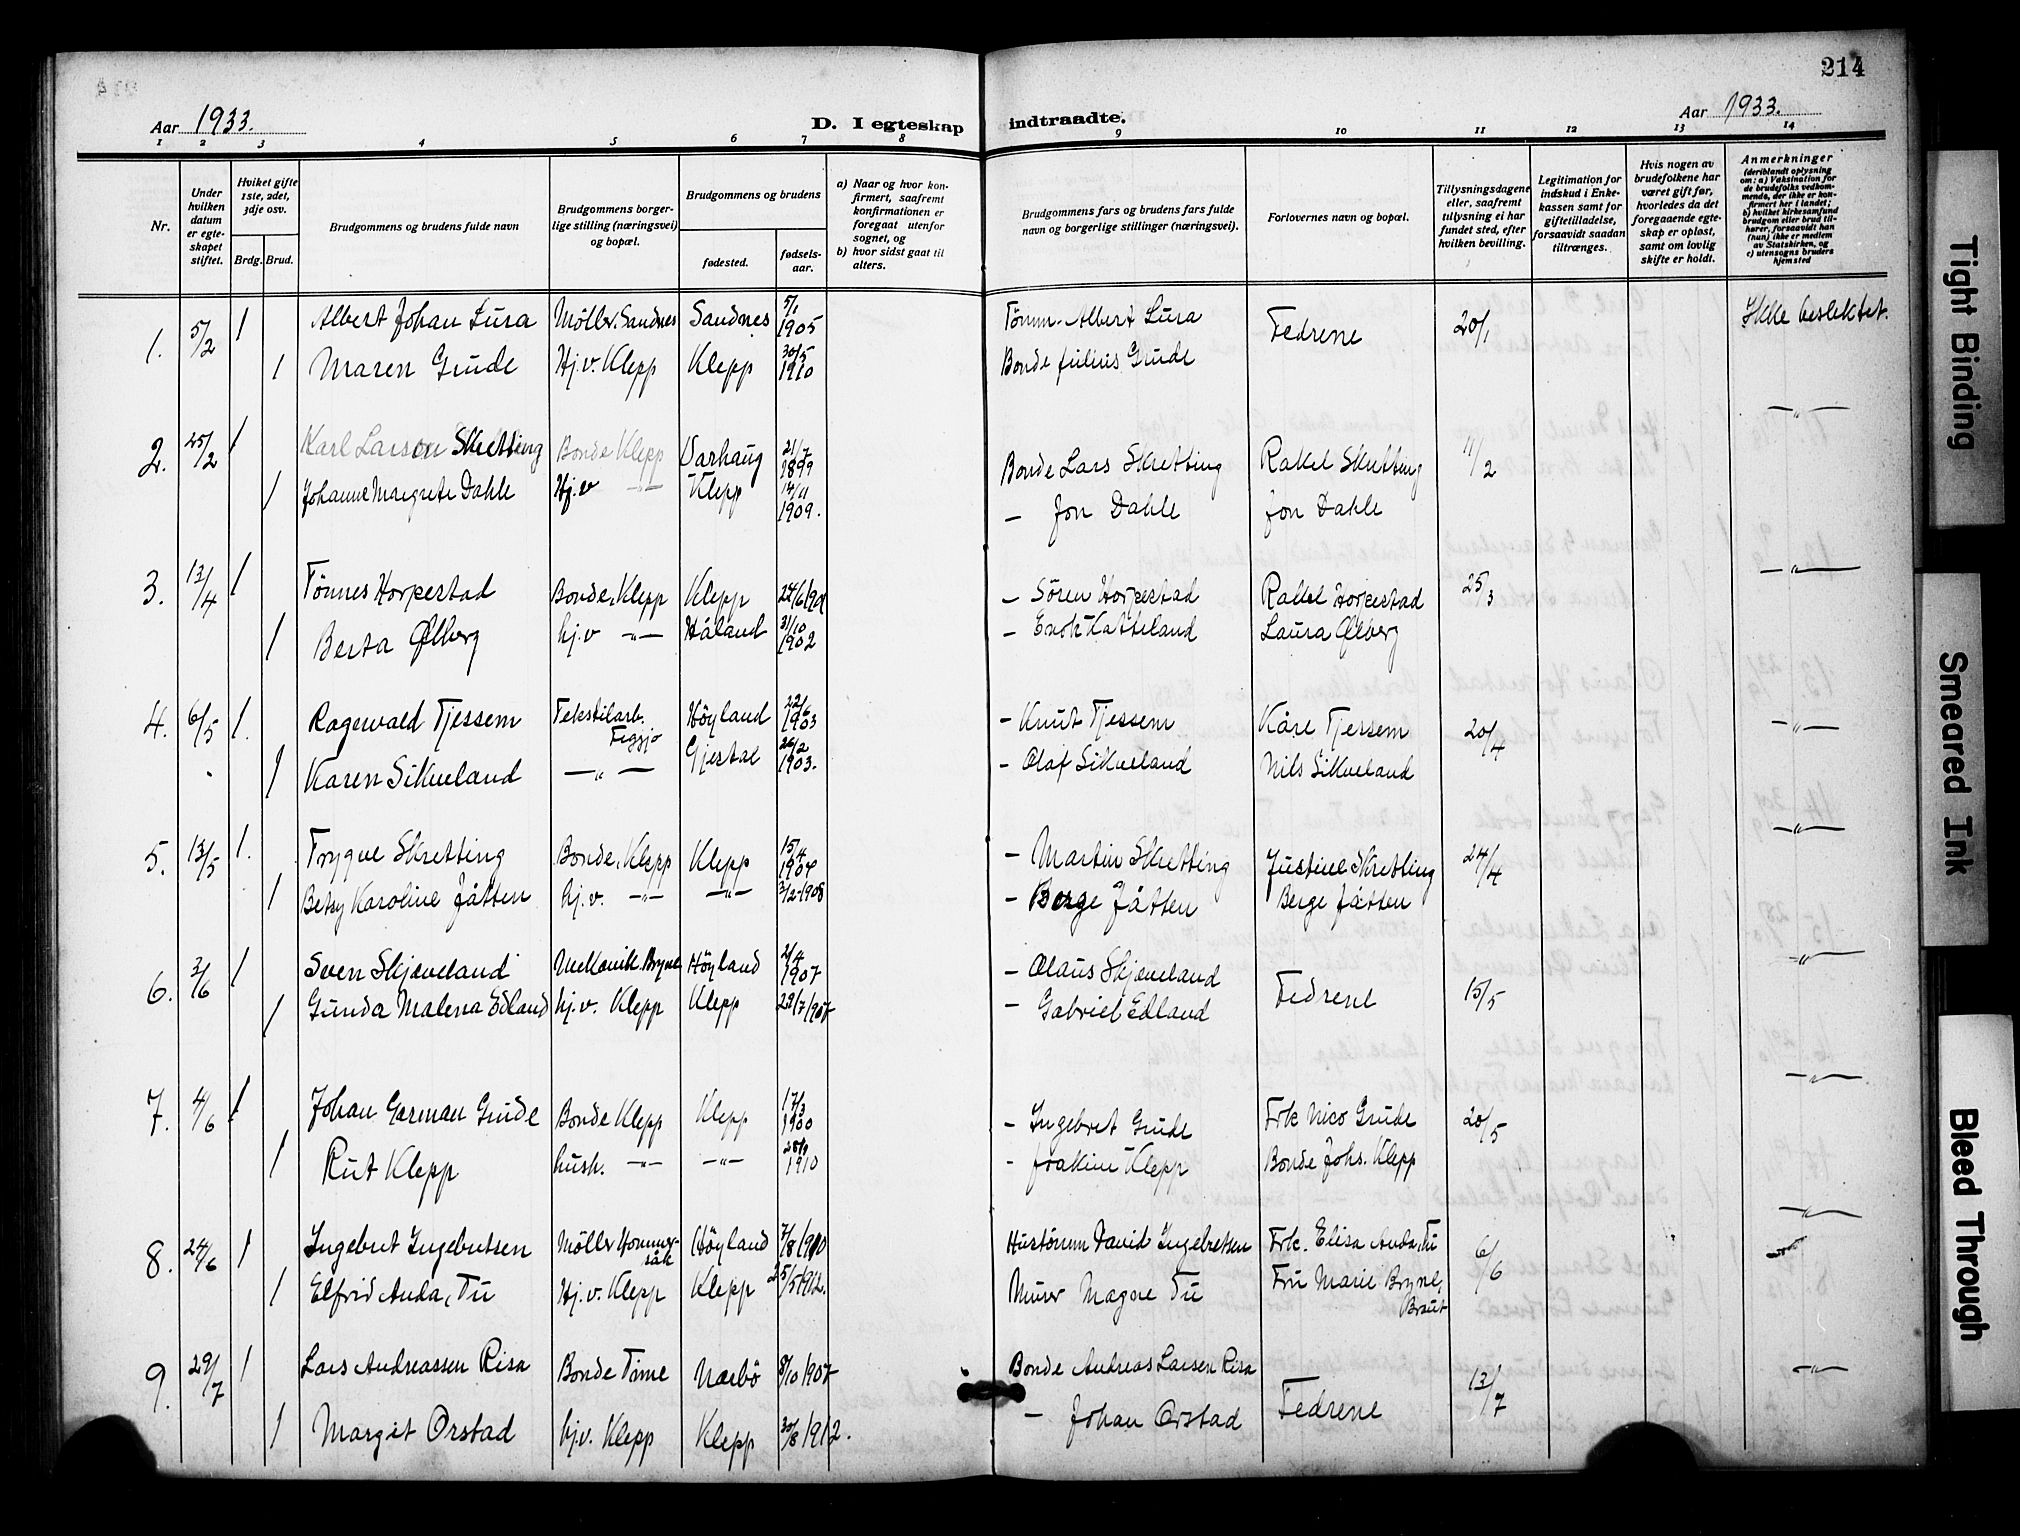 214
Aar 1933.
D. I egteskap indtraadte.
Aar 1933.
1 2 3 4 5 6 7 8 9 10 11 12 13 14
Nr.
Under hvilken datum er egteskapet stiftet.
Hviket gifte 1ste, 2det, 3dje osv.
Brdg. Brud.
Brudgommens og brudens fulde navn
Brudgommens borgerlige stilling (næringsvei) og bopæl.
Brudgommens og brudens
fødested.
fødselsaar.
a) Naar og hvor konfirmert, saafremt konfirmationen er foregaat utenfor sognet, og
b) hvor sidst gaat til alters.
Brudgommens fars og brudens fars fulde navn og borgerlige stillinger (næringsvei).
Forlovernes navn og bopæl.
Tillysningsdagene eller, saafremt tillysning ei har fundet sted, efter hvilken bevilling.
Legitimation for indskud i Enkekassen samt for giftetilladelse, forsaavidt saadan tiltrænges.
Hvis nogen av brudefolkene har været gift før, hvorledes da det foregaaende egteskap er opløst, samt om lovlig skifte er holdt.
Anmerkninger
(deriblandt oplysning om: a) Vaksination for de brudefolks vedkommende, der ikke er konfirmert her i landet; b) hvilket kirkesamfund brudgom eller brud tilhører, forsaavidt han (hun) ikke er medlem av Statskirken, og c) utensogns bruders hjemsted
1. 5/2 1 Albert Johan Lura Møller, Sandnes Sandnes 5/1 1905 Tømm. Albert Lura Fedrene 20/1 Ikke beslektet.
1 Maren Grude Hj.v. Klepp Klepp 30/5 1910 Bonde Julius Grude
2. 25/2 1 Karl Larsen Skretting Bonde Klepp Varhaug 21/7 1899 Bonde Lars Skretting Rakel Skretting 11/2 —"—
1 Johanne Margrete Dahle Hj.v —"— Klepp 14/11 1909. — Jon Dahle Jon Dahle
3. 13/4 1 Tønnes Horpestad Bonde, Klepp Klepp 24/6 1901 — Sören Horpestad Rakel Horpestad 25/3 —"—
1 Berta Ølberg hj.v —"— Håland 31/10 1902 — Enok Katteland Laura Ølberg
4. 6/5 1. Ragnvald Tjessem Tekstilarb. Figgjo Höyland 22/6 1903 — Knut Tjessem Kåre Tjessem 20/4 —"—
1 Karen Sikveland —"— Gjestal 26/2 1903. — Olaf Sikveland Nils Sikveland
5. 13/5 1. Trygve Skretting Bonde, Klepp Klepp 15/4 1904 — Martin Skretting Justine Skretting 24/4 —"—
1 Betsy Karoline Jåtten hj.v. —"— —"— 3/2 1908 — Berge Jåtten Berge Jåtten
6. 3/6 1 Sven Skjæveland Mekanik. Bryne Höyland 2/4 1907 — Olaus Skjæveland Fedrene 15/5 —"—
1 Gunda Malena Edland hj.v. Klepp Klepp 22/7 1907 — Gabriel Edland
7. 4/6 1 Johan Garman Grude Bonde Klepp Klepp 17/3 1900 — Ingebret Grude Frk Nico Grude 20/5 —"—
1 Rut Klepp hush. —"— —"— 28/9 1910 — Joakim Klepp Bonde Johs. Klepp
8. 24/6 1 Ingebret Ingebretsen Møller Hommersåk Höyland 7/8 1910 Hustømm David Ingebretsen Frk. Elisa Anda, Tu 6/6 —"—
1 Elfrid Anda, Tu Hj.v. Klepp Klepp 25/5 1912. Murer Magne Tu Fru Marie Bryne, Braut
9. 29/7 1 Lars Andreassen Risa Bonde Time Nærbö 8/10 1907 Bonde Andreas Larsen Risa Fedrene 13/7 —"—
1 Margit Orstad hj.v. Klepp Klepp 30/8 1912. — Johan Orstad
Tight Binding
Smeared Ink
Bleed Through